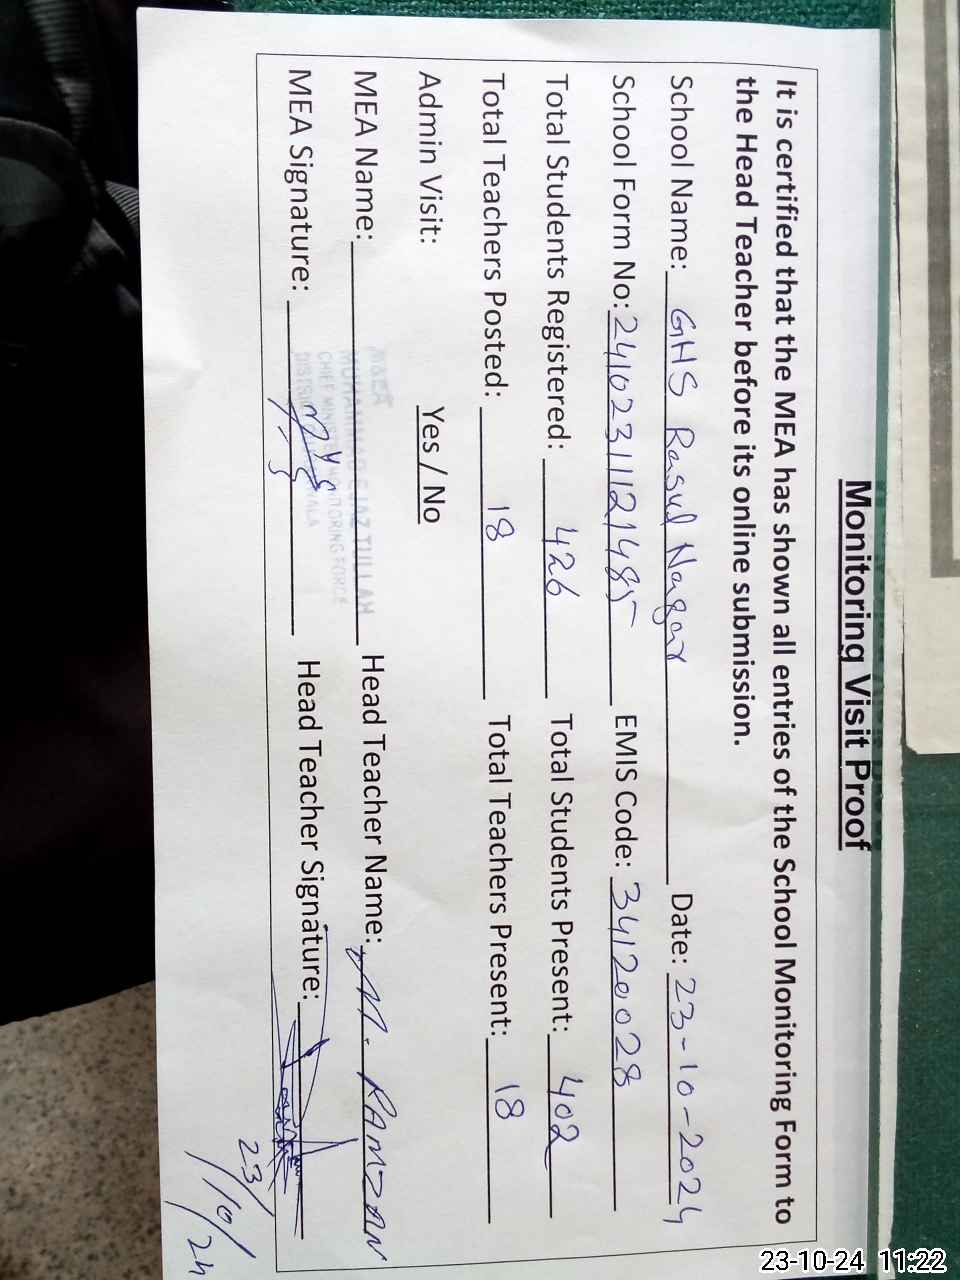 Monitoring Visit Proof
It is certified that the MEA has shown all entries of the School Monitoring Form to
the Head Teacher before its online submission.
School Name: GHS Rasul Nagar Date: 23-10-2024
School Form No: 24102311121485 EMIS Code: 34120028
Total Students Registered: 426 Total Students Present: 402
Total Teachers Posted: 18 Total Teachers Present: 18
Admin Visit: Yes / No
M&EA
MUHAMMAD EJAZ TULLAH
CHIEF MINISTER MONITORING FORCE
MEA Name: Head Teacher Name: M. RAMZAN
MEA Signature: Head Teacher Signature:
23/10/24
23-10-24 11:22